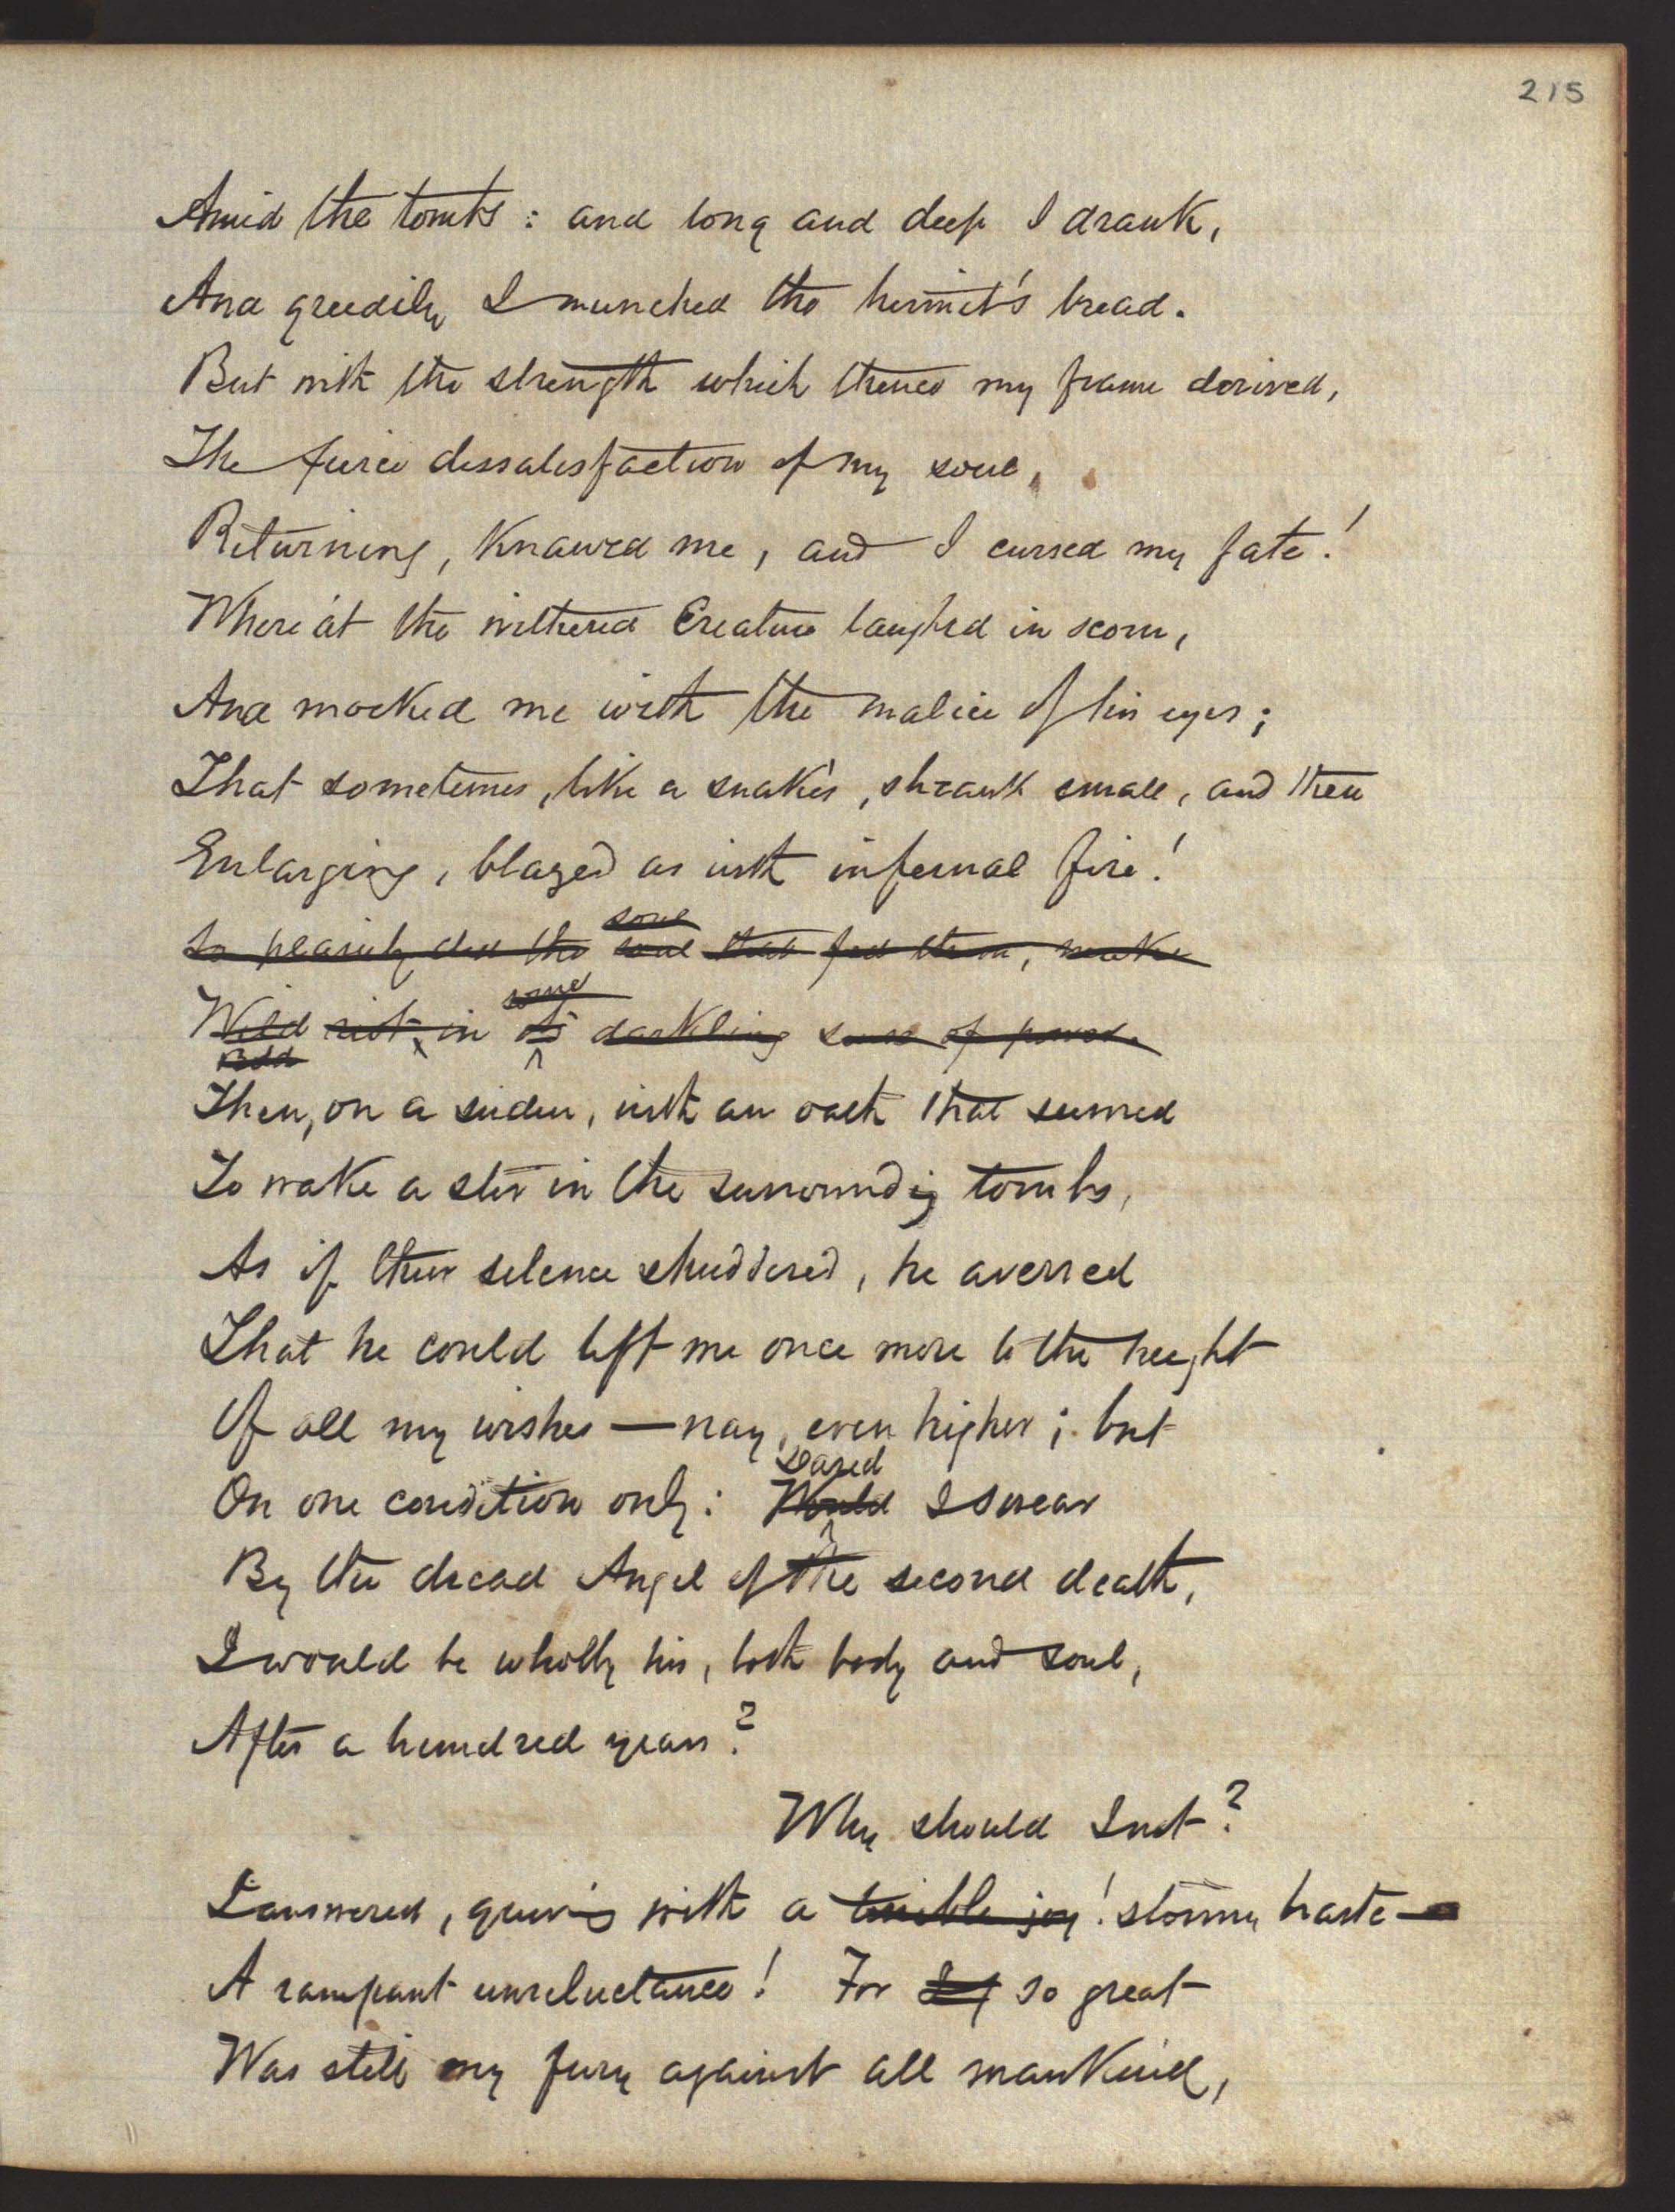 215
Amid the tombs : and long and deep I drank,
And greedily I munched the hermit's bread.
But with the strength which thence my frame derived,
The fierce dissatisfaction of my soul,
Returning, Knawed me, and I cursed my fate!
Whereat the withered Creature laughed in scorn,
And mocked me with the malice of his eyes;
That sometimes, like a snake's, shrank small, and then
Enlarging, blazed as with infernal fire!
soul
So plainly did the soul that fed them, make
some
Wild riot in its darkling sense of power.
Then, on a suden, with an oath that seemed
To wake a stir in the surrounding tombs,
As if their silence shuddered, he averred
That he could lift me once more to the height
Of all my wishes — nay, even higher; but
Dared
On one condition only: Would I swear
By the dread Angel of the second death,
I would be wholly his, both body and soul,
After a hundred years?
Why should I not?
I answered, quiv'ing with a terrible joy! stormy haste —
A rampant unreluctance! For so great
Was still my fury against all mankind,